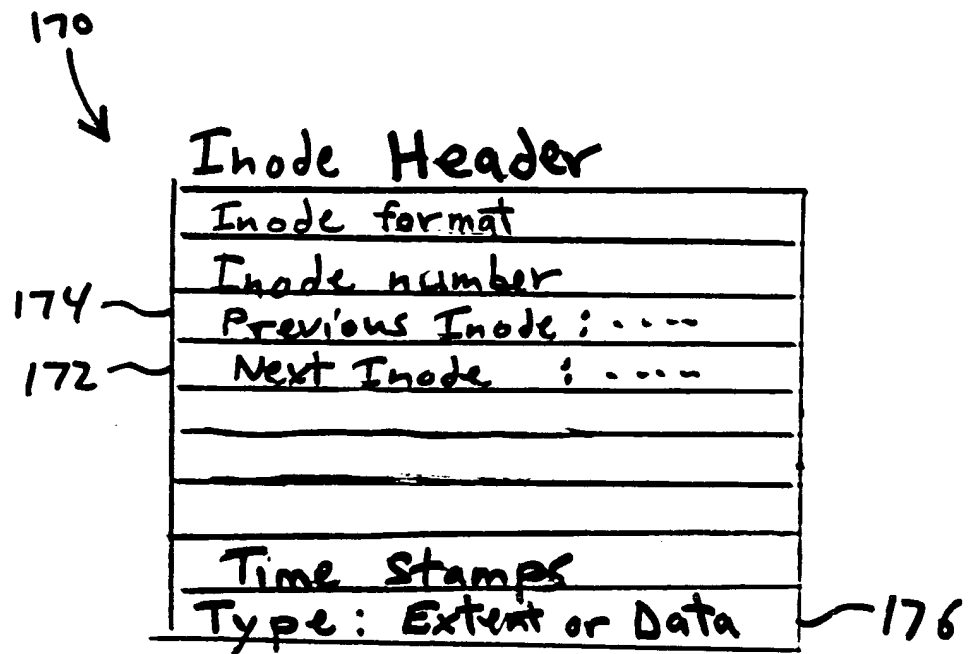 170
Inode Header
Inode format
Inode number
174 Previous Inode : ....
172 Next Inode : ....
Time Stamps
Type: Extent or Data 176